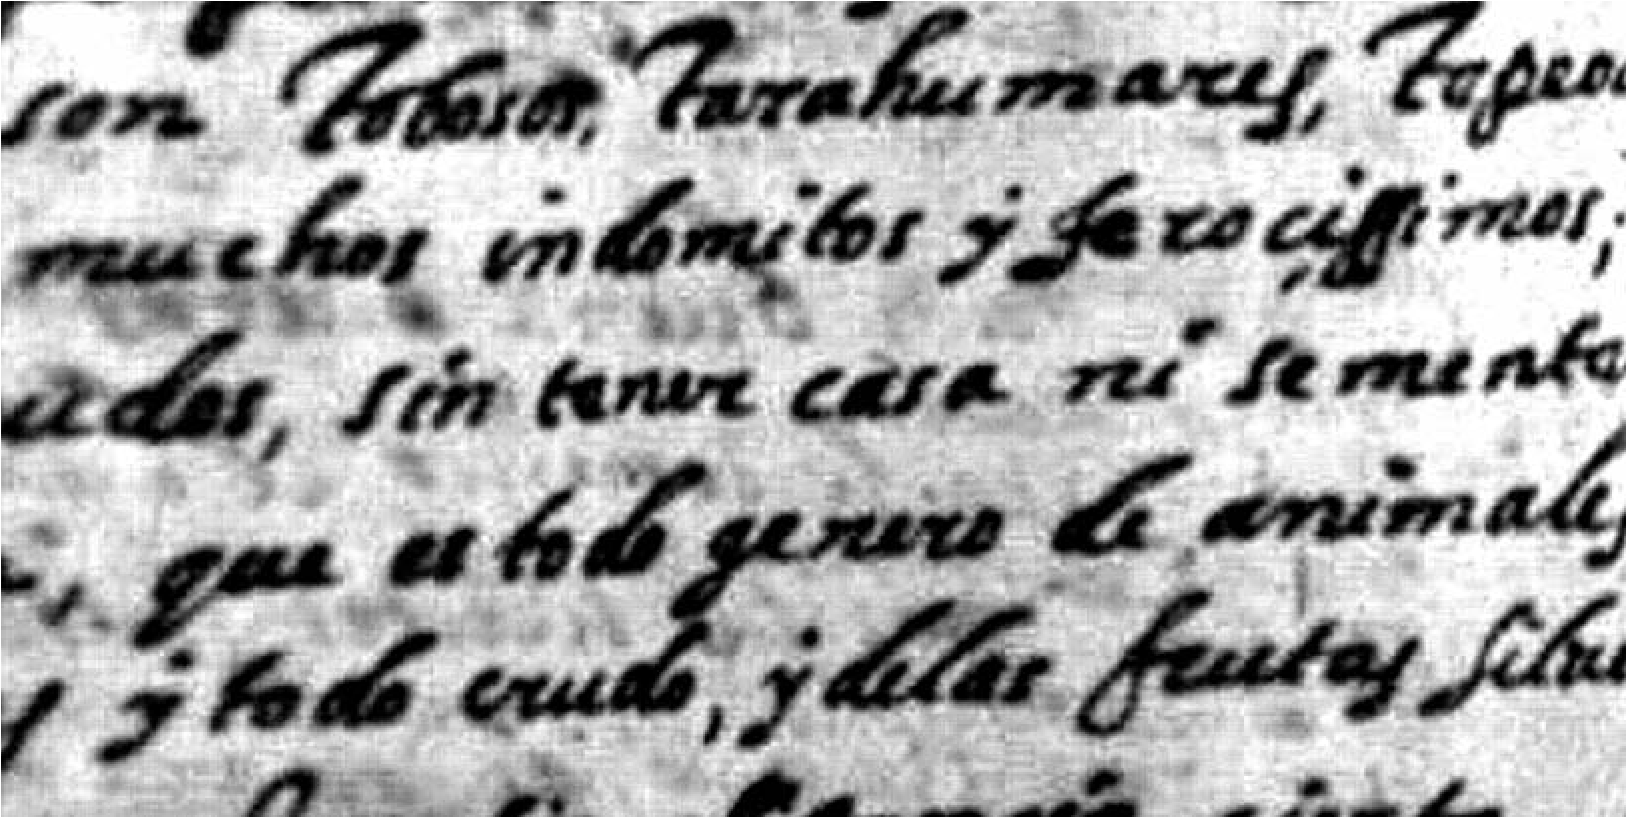 son Tobosos, Tarahumares, Tepeou
muchos indomitos y ferocissimos;
udos, sin tener casa ni sementa
, que es todo genero de animales
y todo crudo, y delas frutas silue